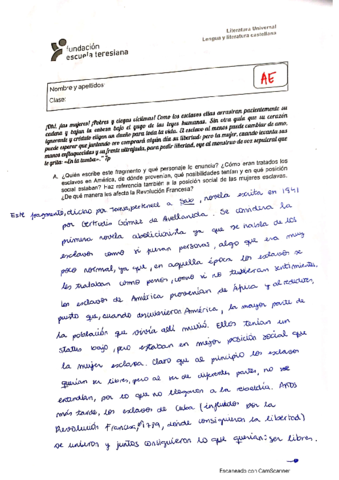 Literatura Universal
Lengua y literatura castellana
fundación
escuela teresiana
Nombre y apellidos:
Clase:
AE
¡Oh!, ¡las mujeres! ¡Pobres y ciegas víctimas! Como los esclavos ellas arrastran pacientemente su
cadena y bajan la cabeza bajo el yugo de las leyes humanas. Sin otra guía que su corazón
ignorante y crédulo eligen un dueño para toda la vida. El esclavo al menos puede cambiar de amo,
puede esperar que juntando oro comprará algún día su libertad: pero la mujer, cuando levanta sus
manos enflaquecidas y su frente ultrajada, para pedir libertad, oye al monstruo de voz sepulcral que
le grita: «En la tumba».
A. ¿Quién escribe este fragmento y qué personaje lo enuncia? ¿Cómo eran tratados los
esclavos en América, de dónde provenían, qué posibilidades tenían y en qué posición
social estaban? Haz referencia también a la posición social de las mujeres esclavas.
¿De qué manera les afecta la Revolución Francesa?
Este fragmento, dicho por perteneit a Sab, novela escrita en 1941
por Gertrudis Gómez de Avellaneda. Se considera la
primera novela abolicionista ya que se habla de los
esclavos como si fueran personas, algo que era muy
poco normal, ya que, en aquella época los esclavos se
les trataban como perros, como si no tuvieran sentimientos.
Los esclavos de América provenían de África y alrededores,
puesto que, cuando descubrieron América, la mayor parte de
la población que vivía allí murió. Ellos tenían un
status bajo, pero estaban en mejor posición social que
la mujer esclava. Claro que al principio los esclavos
querían ser libres, pero al ser de diferentes partes, no se
entendían, por lo que no llegaron a la rebeldía. Años
más tarde, los esclavos de Cuba (influidos por la
Revolución Francesa, 1789, donde consiguieron la libertad)
se unieron y juntos consiguieron lo que querían: ser libres.
Escaneado con CamScanner